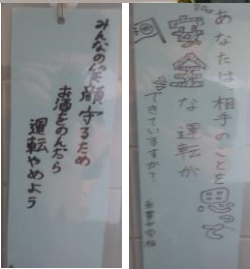 みんなの笑顔守るため
お酒をのんだら
運転やめよう
あなたは相手のことを思って
安全な運転が
できていますか?